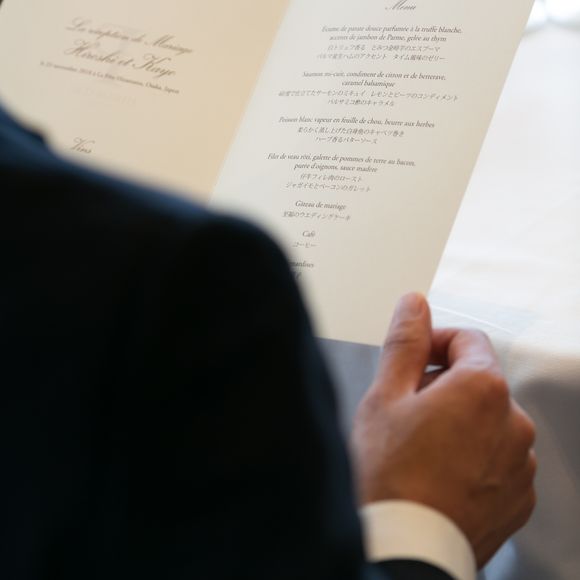 La réception de Mariage
Hiroshi et Kayo
le 23 novembre 2018 à La Fête Hiramatsu, Osaka, Japon
Vins
Menu
Ecume de patate douce parfumée à la truffe blanche,
accents de jambon de Parme, gelée au thym
白トリュフ香る とみつ金時芋のエスプーマ
パルマ産生ハムのアクセント タイム風味のゼリー
Saumon mi-cuit, condiment de citron et de betterave,
caramel balsamique
40度で仕立てたサーモンのミキュイ レモンとビーツのコンディメント
バルサミコ酢のキャラメル
Poisson blanc vapeur en feuille de chou, beurre aux herbes
柔らかく蒸し上げた白身魚のキャベツ巻き
ハーブ香るバターソース
Filet de veau rôti, galette de pommes de terre au bacon,
purée d'oignons, sauce madère
仔牛フィレ肉のロースト
ジャガイモとベーコンのガレット
Gâteau de mariage
至福のウエディングケーキ
Café
コーヒー